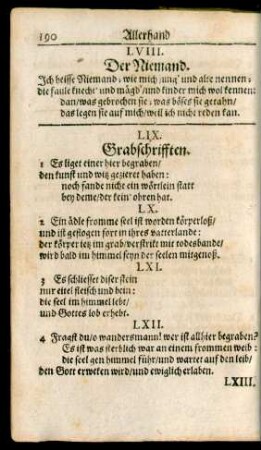 190 Allerhand
LVIII.
Der Niemand.
Ich heisse Niemand, wie mich jung' und alte nennen,
die faule knecht' und mågd'/und kinder mich wol kennen:
dan/was gebrochen sie, was böses sie getahn/
das legen sie auf mich/weil ich nicht reden kan.
LIX.
Grabschrifften.
1 Es liget einer hier begraben/
den kunst und witz gezieret haben:
noch fande nicht ein wörtlein statt
bey deme/der kein' ohren hat.
LX.
2 Ein ådle fromme seel ist worden körperloß/
und ist geflogen fort in ihres vatterlande:
der körper ietz im grab/verstrikt mit todesbande/
wird bald im himmel seyn der seelen mitgenoß.
LXI.
3 Es schliesset diser stein
nur eitel fleisch und bein:
die seel im himmel lebt/
und Gottes lob erhebt.
LXII.
4 Fragst du/o wandersmann! wer ist allhier begraben?
Es ist was sterblich war an einem frommen weib:
die seel gen himmel führ/und wartet auf den leib/
den Gott erweken wird/und ewiglich erlaben.
LXIII.